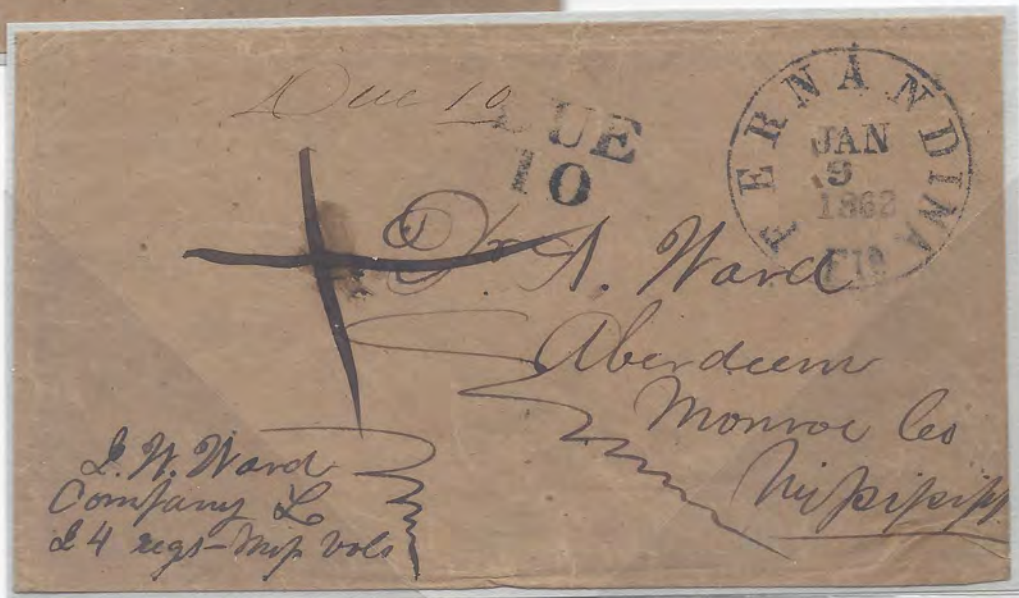 Due 10
DUE
10
FERNANDINA
JAN
9
1862
Fla
Dr. A. Ward
Aberdeen
Monroe Co
Mississippi
L. W. Ward
Company L
24 regt - Miss Vols